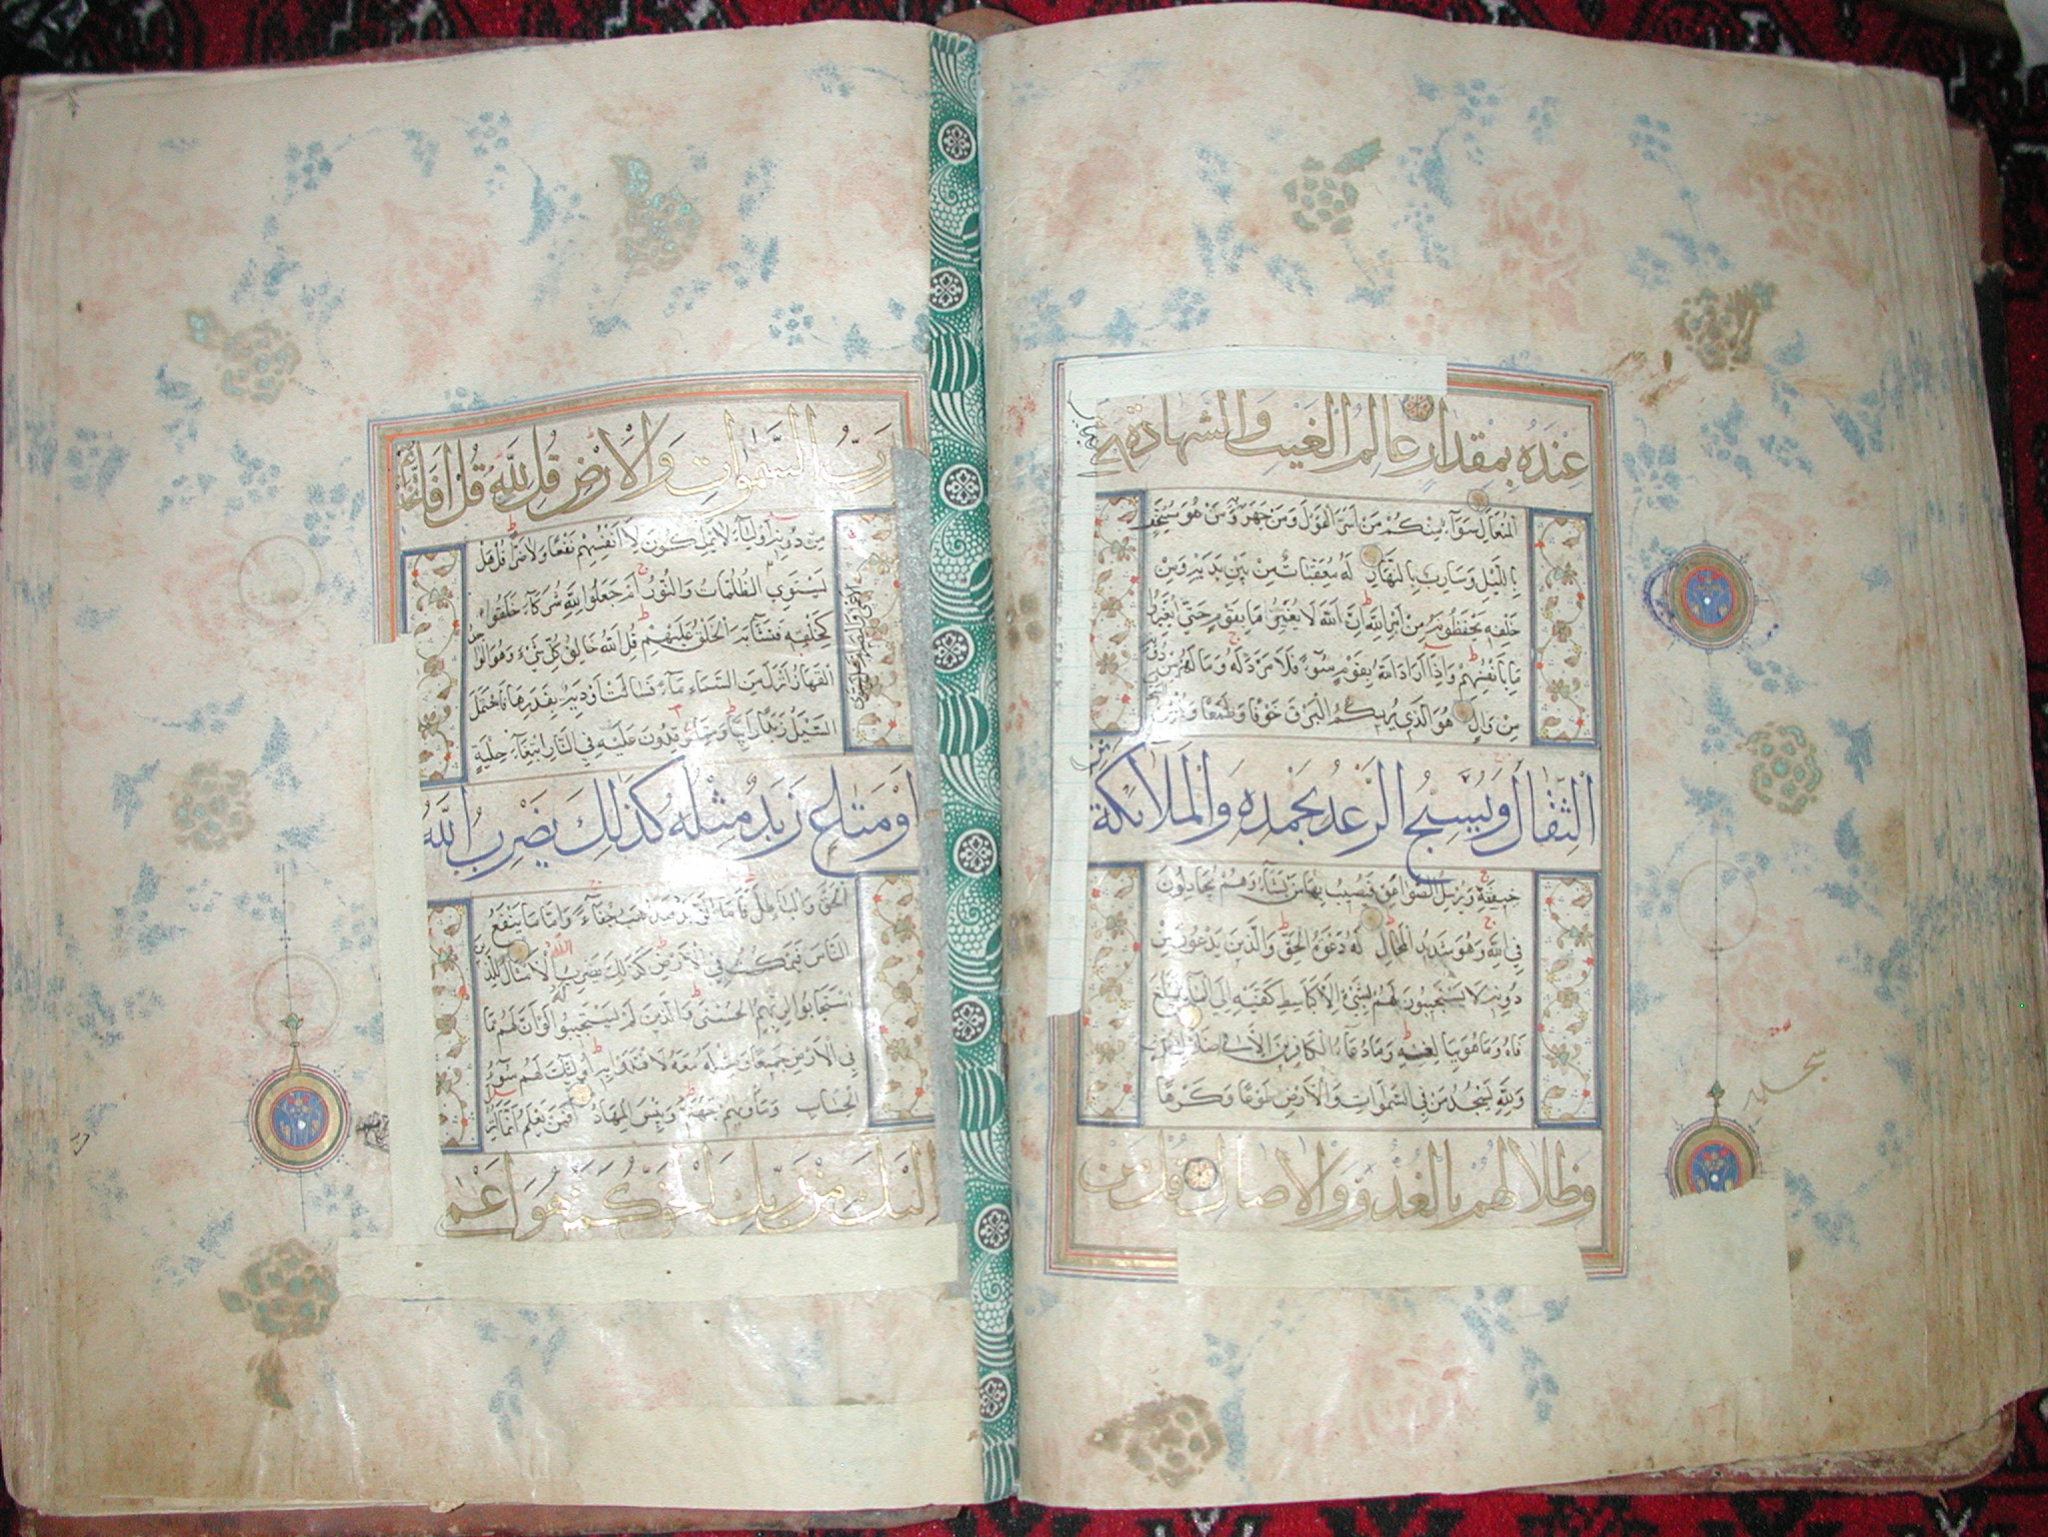 عِنْدَهُ بِمِقْدَارٍ عَالِمُ الْغَيْبِ وَالشَّهَادَةِ
الْمُتَعَالِ سَوَآءٌ مِنْكُمْ مَنْ اَسَرَّ الْقَوْلَ وَمَنْ جَهَرَ وَمَنْ هُوَ مُسْتَخْفٍ
بِاللَّيْلِ وَسَارِبٌ بِالنَّهَارِ لَهُ مُعَقِّبَاتٌ مِنْ بَيْنِ يَدَيْهِ وَمِنْ
خَلْفِهِ يَحْفَظُونَهُ مِنْ اَمْرِ اللّٰهِ اِنَّ اللّٰهَ لَا يُغَيِّرُ مَا بِقَوْمٍ حَتّٰى يُغَيِّرُوا
مَا بِاَنْفُسِهِمْ وَاِذَا اَرَادَ اللّٰهُ بِقَوْمٍ سُوٓءًا فَلَا مَرَدَّ لَهُ وَمَا لَهُمْ مِنْ دُونِهِ
مِنْ وَالٍ هُوَ الَّذِي يُرِيكُمُ الْبَرْقَ خَوْفًا وَطَمَعًا وَيُنْشِئُ
الثِّقَالَ وَيُسَبِّحُ الرَّعْدُ بِحَمْدِهِ وَالْمَلَائِكَةُ
خِيفَتِهِ وَيُرْسِلُ الصَّوَاعِقَ فَيُصِيبُ بِهَا مَنْ يَشَآءُ وَهُمْ يُجَادِلُونَ
فِي اللّٰهِ وَهُوَ شَدِيدُ الْمِحَالِ لَهُ دَعْوَةُ الْحَقِّ وَالَّذِينَ يَدْعُونَ مِنْ
دُونِهِ لَا يَسْتَجِيبُونَ لَهُمْ بِشَيْءٍ اِلَّا كَبَاسِطِ كَفَّيْهِ اِلَى الْمَآءِ لِيَبْلُغَ
فَاهُ وَمَا هُوَ بِبَالِغِهِ وَمَا دُعَآءُ الْكَافِرِينَ اِلَّا فِي ضَلَالٍ
وَلِلّٰهِ يَسْجُدُ مَنْ فِي السَّمٰوَاتِ وَالْاَرْضِ طَوْعًا وَكَرْهًا
وَظِلَالُهُمْ بِالْغُدُوِّ وَالْاٰصَالِ قُلْ مَنْ
سجده
رَبُّ السَّمٰوَاتِ وَالْاَرْضِ قُلِ اللّٰهُ قُلْ اَفَاتَّخَذْتُمْ
مِنْ دُونِهِ اَوْلِيَآءَ لَا يَمْلِكُونَ لِاَنْفُسِهِمْ نَفْعًا وَلَا ضَرًّا قُلْ هَلْ
يَسْتَوِي الْاَعْمٰى وَالْبَصِيرُ اَمْ هَلْ تَسْتَوِي الظُّلُمَاتُ وَالنُّورُ اَمْ جَعَلُوا لِلّٰهِ شُرَكَآءَ خَلَقُوا
كَخَلْقِهِ فَتَشَابَهَ الْخَلْقُ عَلَيْهِمْ قُلِ اللّٰهُ خَالِقُ كُلِّ شَيْءٍ وَهُوَ الْوَاحِدُ
الْقَهَّارُ اَنْزَلَ مِنَ السَّمَآءِ مَآءً فَسَالَتْ اَوْدِيَةٌ بِقَدَرِهَا فَاحْتَمَلَ
السَّيْلُ زَبَدًا رَابِيًا وَمِمَّا يُوقِدُونَ عَلَيْهِ فِي النَّارِ ابْتِغَآءَ حِلْيَةٍ
اَوْ مَتَاعٍ زَبَدٌ مِثْلُهُ كَذٰلِكَ يَضْرِبُ اللّٰهُ
الْحَقَّ وَالْبَاطِلَ فَاَمَّا الزَّبَدُ فَيَذْهَبُ جُفَآءً وَاَمَّا مَا يَنْفَعُ
النَّاسَ فَيَمْكُثُ فِي الْاَرْضِ كَذٰلِكَ يَضْرِبُ اللّٰهُ الْاَمْثَالَ لِلَّذِينَ
اسْتَجَابُوا لِرَبِّهِمُ الْحُسْنٰى وَالَّذِينَ لَمْ يَسْتَجِيبُوا لَهُ لَوْ اَنَّ لَهُمْ مَا
فِي الْاَرْضِ جَمِيعًا وَمِثْلَهُ مَعَهُ لَافْتَدَوْا بِهِ اُولٰئِكَ لَهُمْ سُوٓءُ
الْحِسَابِ وَمَأْوٰيهُمْ جَهَنَّمُ وَبِئْسَ الْمِهَادُ اَفَمَنْ يَعْلَمُ اَنَّمَا اُنْزِلَ
اِلَيْكَ مِنْ رَبِّكَ الْحَقُّ كَمَنْ هُوَ اَعْمٰى